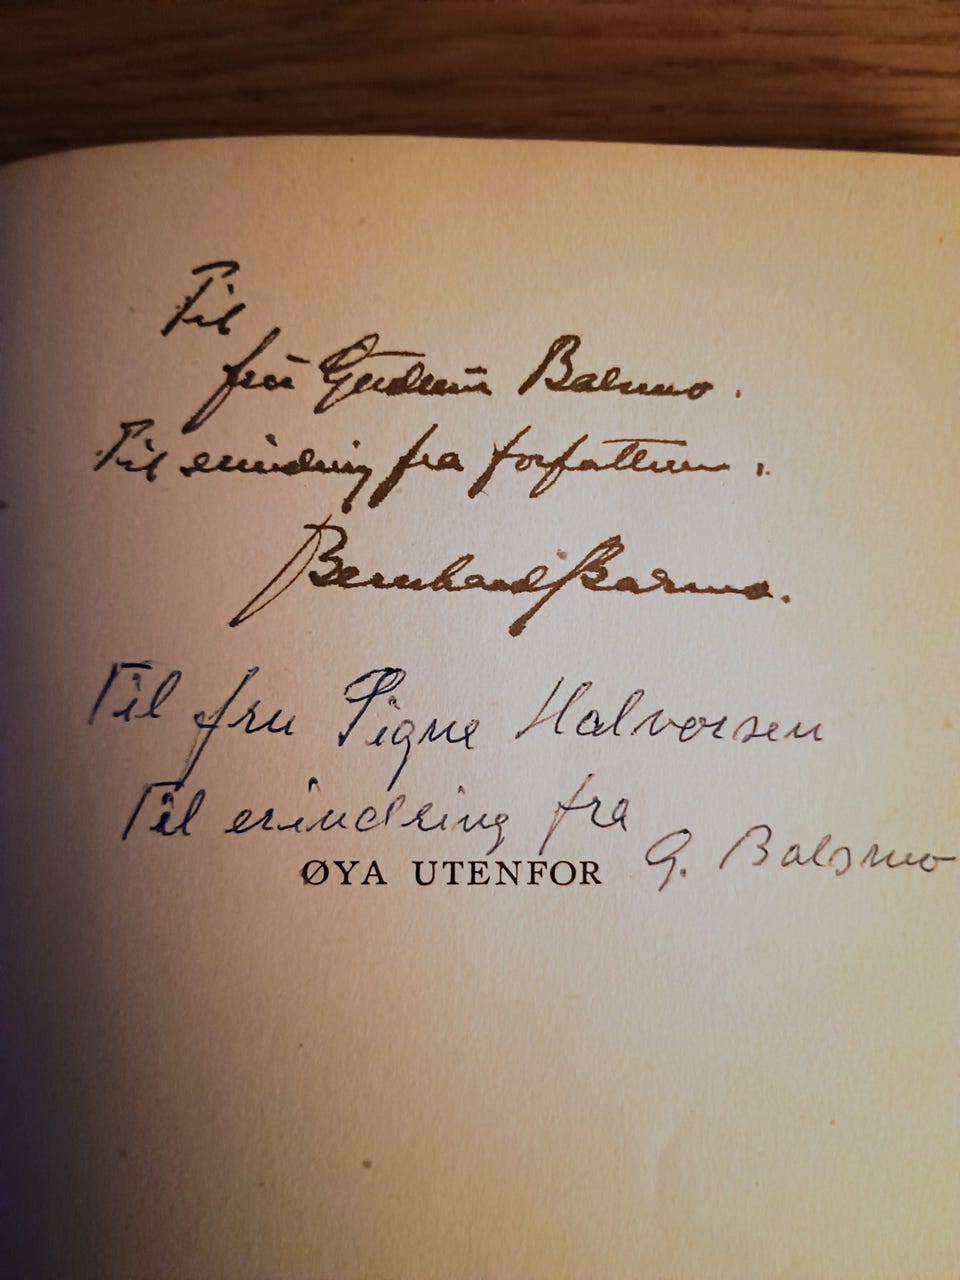 Til
fru Gudrun Balsmo.
Til erindring fra forfatteren.
Bernhard
Til fru Signe Halvorsen
Til erindring fra
G. Balsmo
ØYA UTENFOR